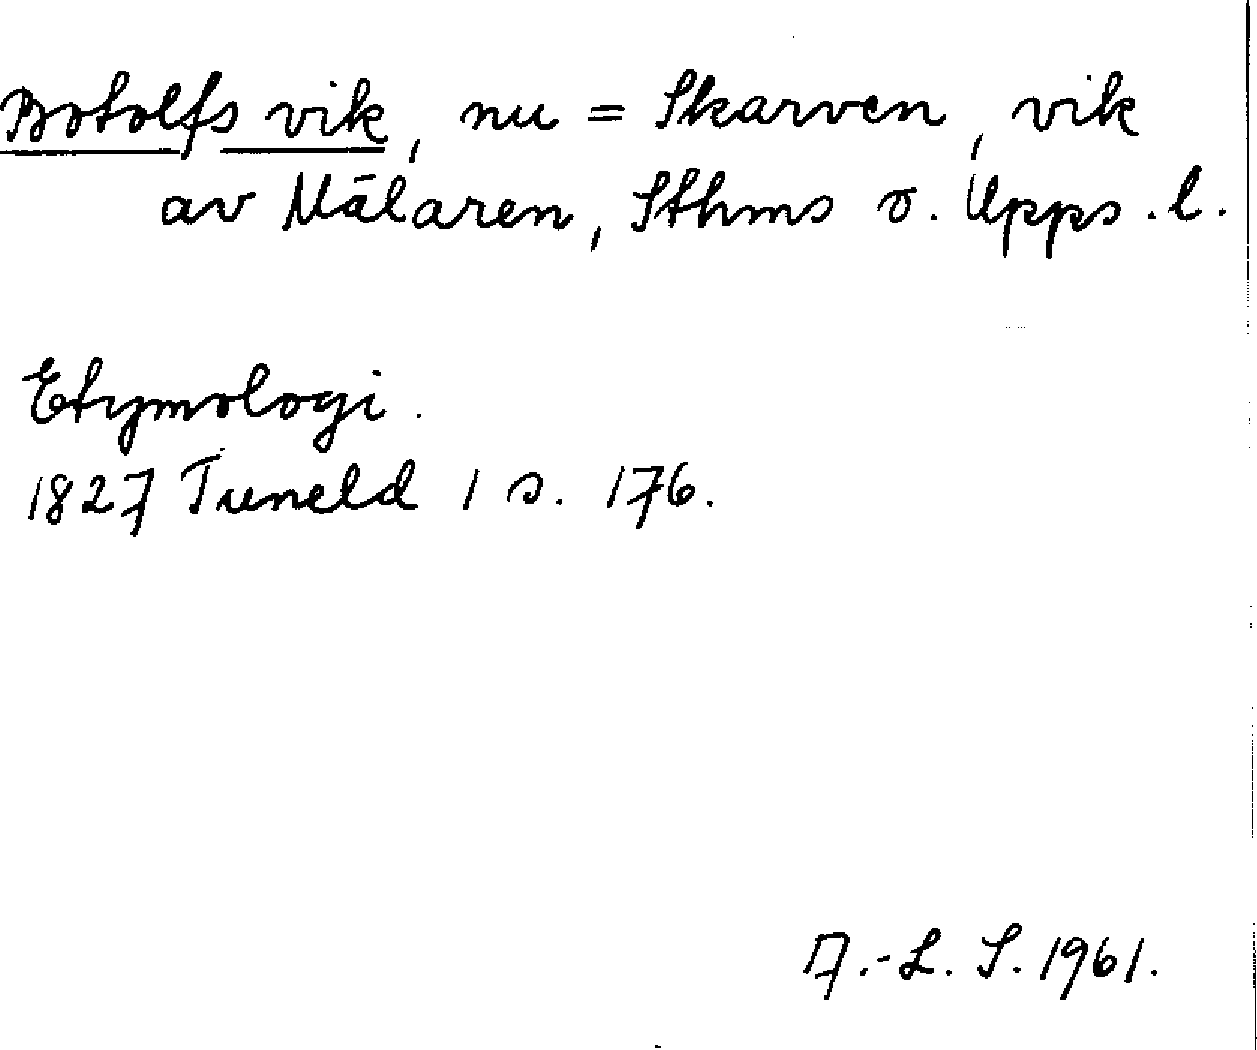 Botolfs vik, nu = Skarven, vik
av Mälaren, Sthms o. Upps. l.
Etymologi.
1827 Tuneld 1 s. 176.
A.-L. S. 1961.